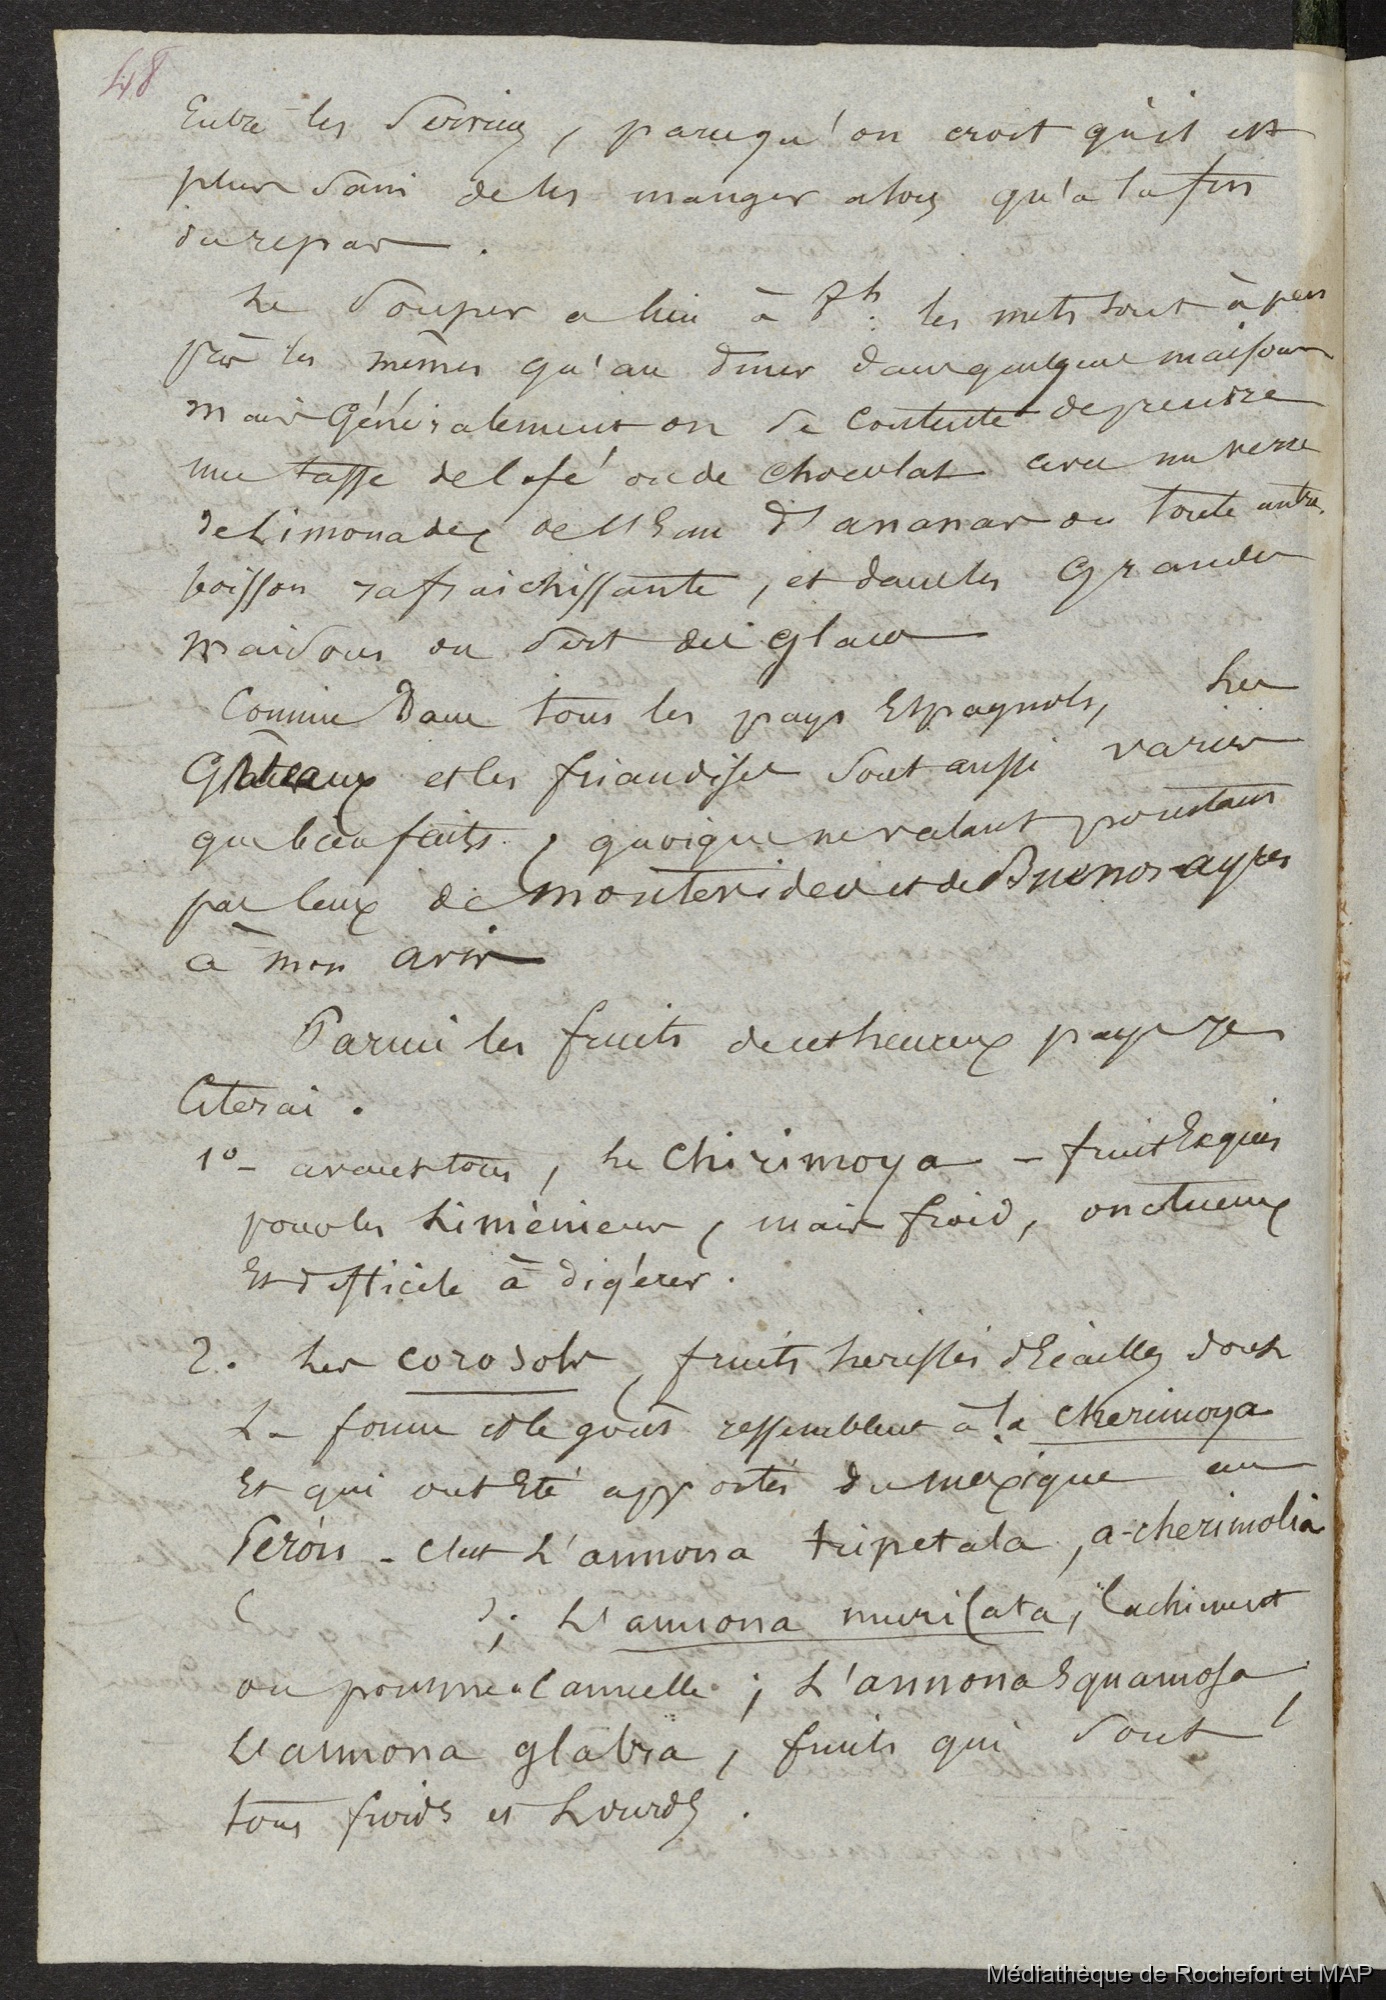 48
Entre les services, parcequ'on croit qu'il est
plus sain de les manger alors qu'a la fin
du repas.
Le Souper a lieu à 7h: les mets sont à peu
près les mêmes qu'au diner dans quelques maisons
mais Généralement on se contente de prendre
une tasse de Café ou de chocolat avec un verre
de Limonade, de l'Eau d'ananas ou toute autre
boisson rafraichissante, et dans les Grandes
maisons on sert des glaces
Comme Dans tous les pays Espagnols, les
Gâteaux et les friandises sont aussi variés
que bien faits, quoique ne valant pourtant
pas ceux de montevideo et de Buenos-ayres
à mon avis
Parmi les fruits de cet heureux pays je
Citerai.
1º- avant tous, le Chirimoya - fruit Exquis
pour les Liméniens, mais froid, onctueux
Et difficile à digérer.
2. Les corosols, fruits herissés d'Ecailles dont
La forme et le goût ressemblent à la cherimoya
Et qui ont Eté apportés du mexique au
Pérou - C'est L'annona tripetala, a-cherimolia
( ); L'annona muricata, Cachiment
ou pomme-Cannelle; L'annona Squamosa,
L'annona glabra, fruits qui sont
tous froids et Lourds.
Médiathèque de Rochefort et MAP